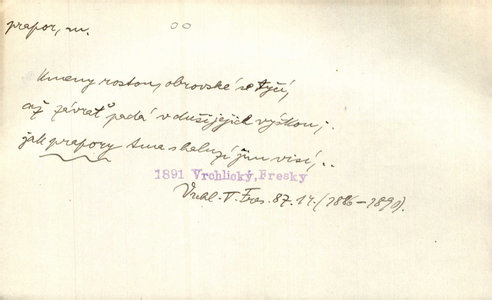 prapor, m.
Kmeny rostou, obrovské se tyčí,
až závrať padá v duši jejich výškou;
jak prapory tma s haluzí jim visí,..
1891 Vrchlický, Fresky
Vrchl. V. Fres. 87. 14. (1886–1890).